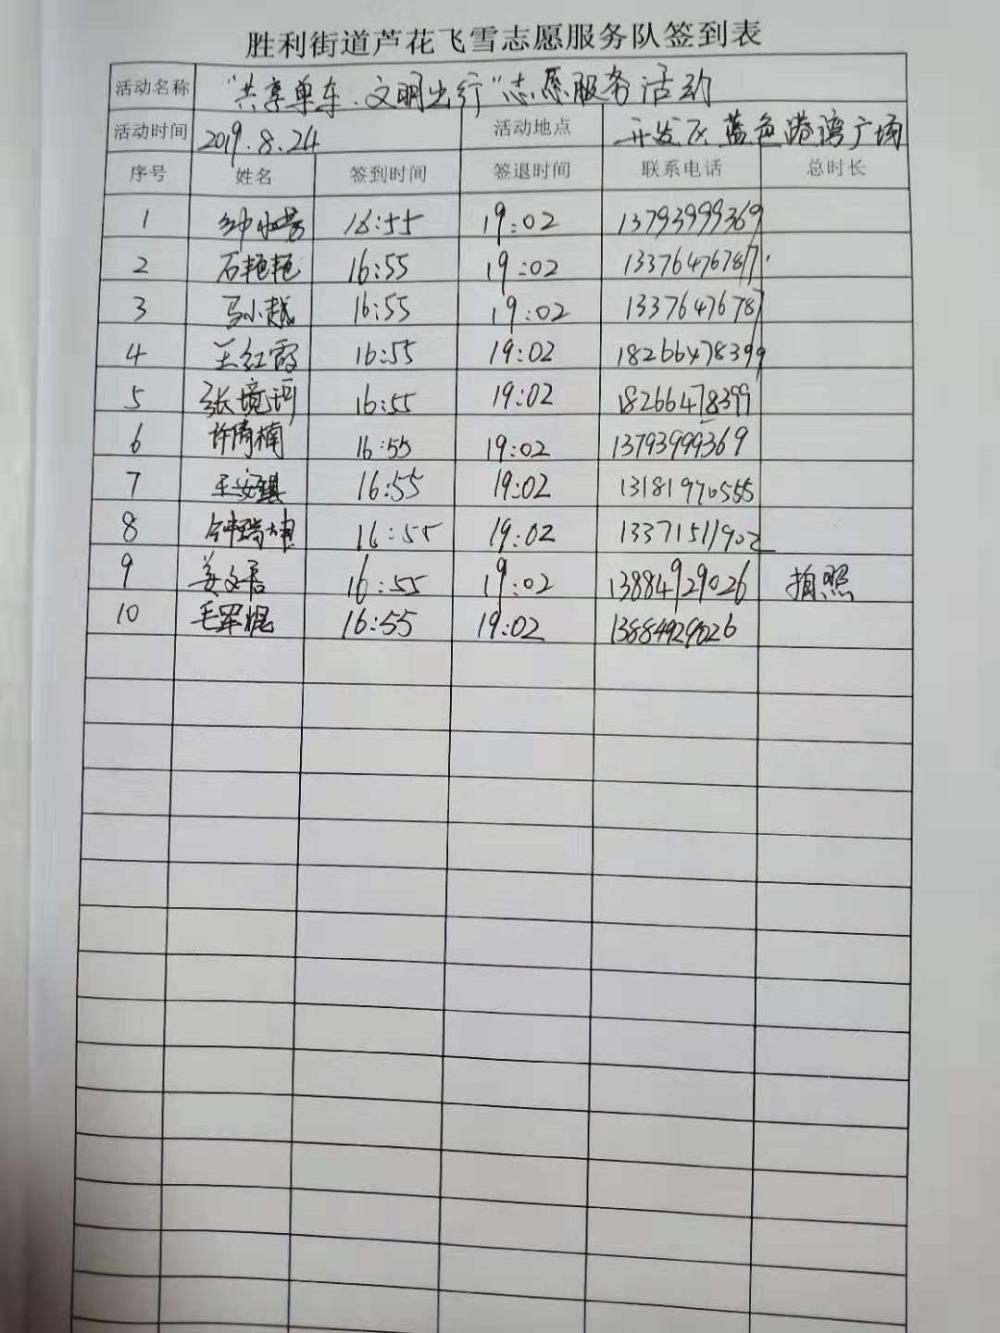 胜利街道芦花飞雪志愿服务队签到表
活动名称 "共享单车、文明出行"志愿服务活动
活动时间 2019.8.24 活动地点 开发区蓝色港湾广场
序号 姓名 签到时间 签退时间 联系电话 总时长
1 16:55 19:02 13793999369
2 石艳艳 16:55 19:02 13376476787
3 马小越 16:55 19:02 13376476787
4 王红霞 16:55 19:02 18266478399
5 张境珂 16:55 19:02 18266478399
6 许倚楠 16:55 19:02 13793999369
7 王安琪 16:55 19:02 13181970555
8 钟瑞坤 16:55 19:02 13371511902
9 姜文君 16:55 19:02 13884929026 拍照
10 毛军棍 16:55 19:02 13884929026